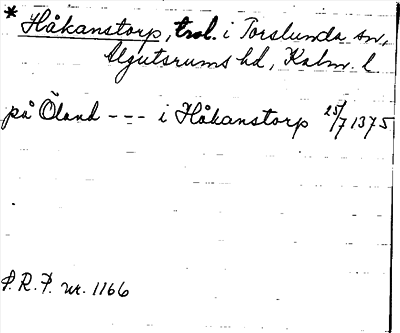 * Håkanstorp, trol. i Torslunda sn,
Algutsrums hd, Kalm. l
på Öland --- i Håkanstorp 25/7 1375
P.R.P. nr. 1166